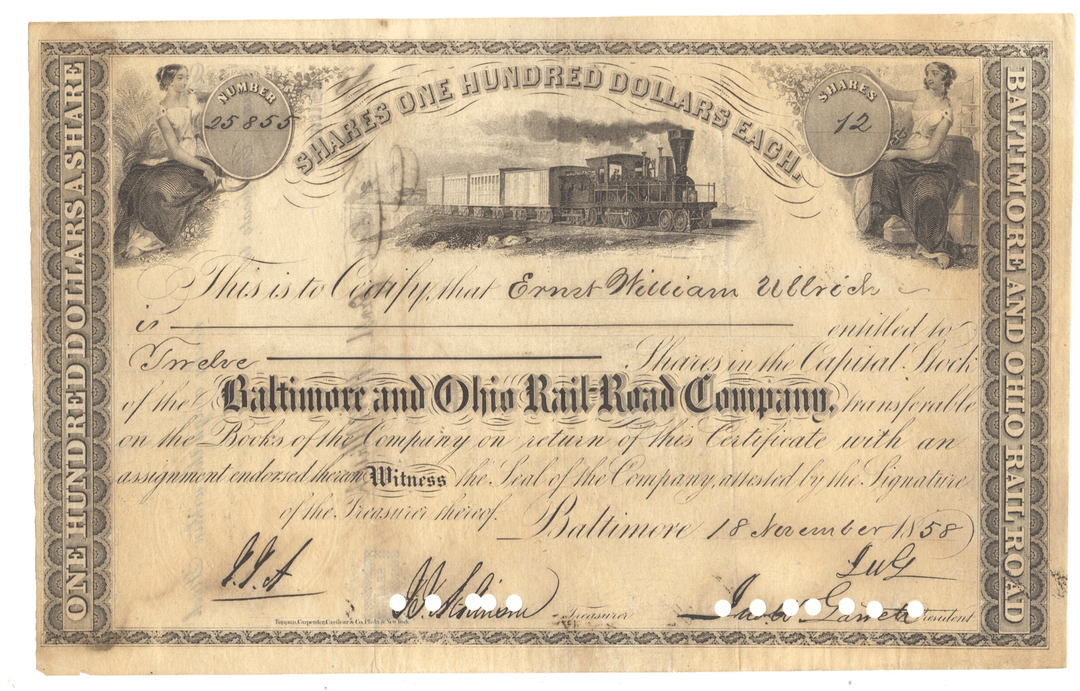 SHARES ONE HUNDRED DOLLARS EACH.
NUMBER
25855
SHARES
12
ONE HUNDRED DOLLARS A SHARE
BALTIMORE AND OHIO RAIL ROAD
This is to Certify, that Ernst William Ullrich
is entitled to
Twelve Shares in the Capital Stock
of the Baltimore and Ohio Rail-Road Company, transferable
on the Books of the Company on return of this Certificate with an
assignment endorsed thereon Witness the Seal of the Company, attested by the Signature
of the Treasurer thereof. Baltimore 18 November 1858
J.J.A
JWG
Treasurer
President
Toppan, Carpenter, Casilear & Co. Phila. & New York